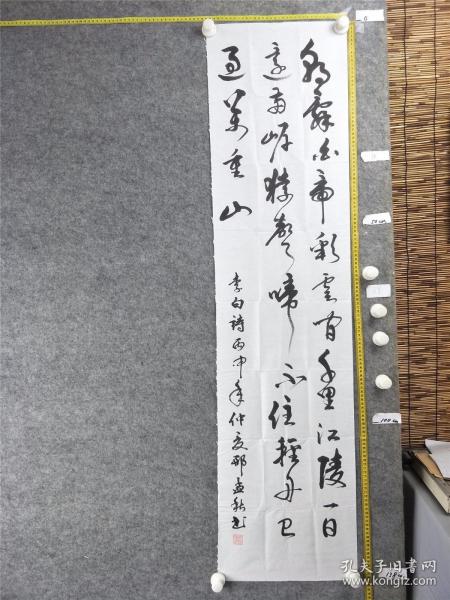 朝辞白帝彩云间千里江陵一日
还两岸猿声啼不住轻舟已
过万重山
李白诗丙申年仲夏邢孟秋书
0
50cm
100cm
孔夫子旧书网
https://www.kongfz.com